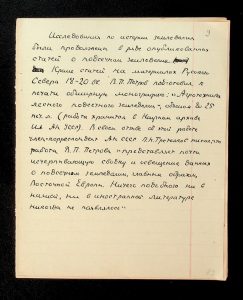 3
Исследования по истории земледелия
были продолжены в ряде опубликованных
статей о подсечном земледелии.
Кроме статей на материалах Русского
Севера 18-20 вв. В.П. Петров подготовил к
печати обширную монографию: "Агротехника
лесного подсечного земледелия", объемом до 25
печ. л. (работа хранится в Научном архиве
ИА АН УССР). В своем отзыве об этой работе
член-корреспондент АН СССР П.Н. Третьяков писал, что
работа В.П. Петрова "представляет почти
исчерпывающую сводку и освещение данных
о подсечном земледелии, главным образом,
Восточной Европы. Ничего подобного ни в
нашей, ни в иностранной литературе
никогда не появлялось"